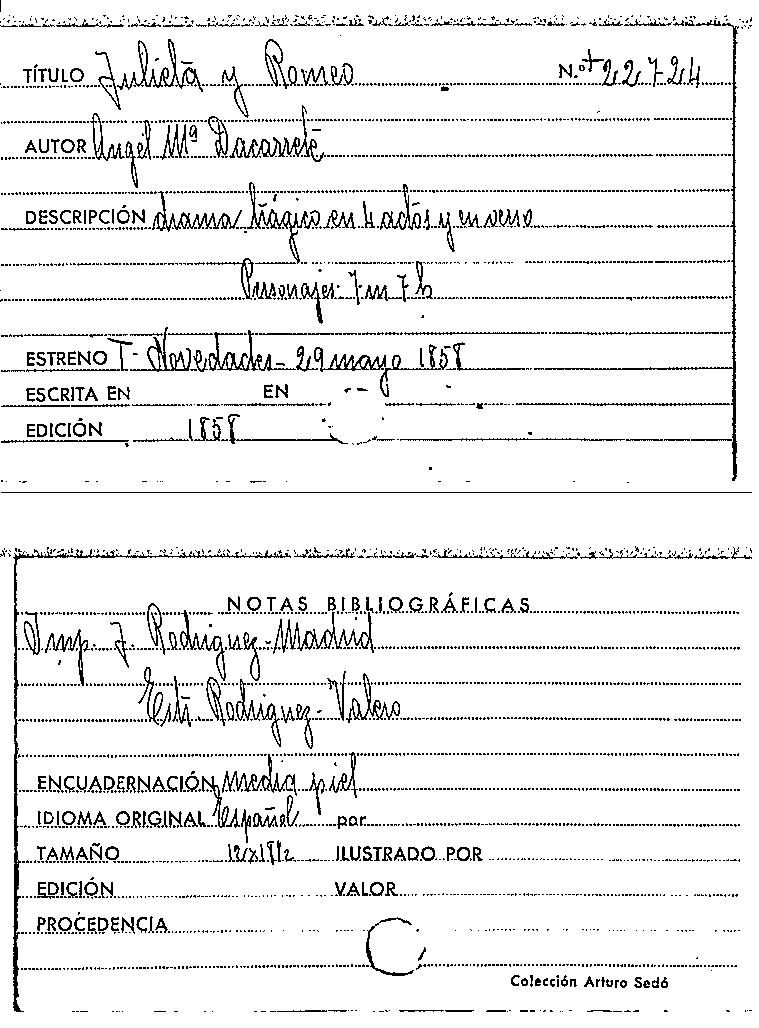 TÍTULO Julieta y Romeo N.º + 22.724
AUTOR Angel Mª Dacarrete
DESCRIPCIÓN drama trágico en 4 actos y en verso
Personajes: 7 m 7 h
ESTRENO T. Novedades - 29 mayo 1858
ESCRITA EN EN --
EDICIÓN 1858
NOTAS BIBLIOGRÁFICAS
Imp. J. Rodriguez - Madrid
Estr. Rodriguez - Valero
ENCUADERNACIÓN media piel
IDIOMA ORIGINAL Español por
TAMAÑO ILUSTRADO POR
EDICIÓN VALOR
PROCEDENCIA
Colección Arturo Sedó